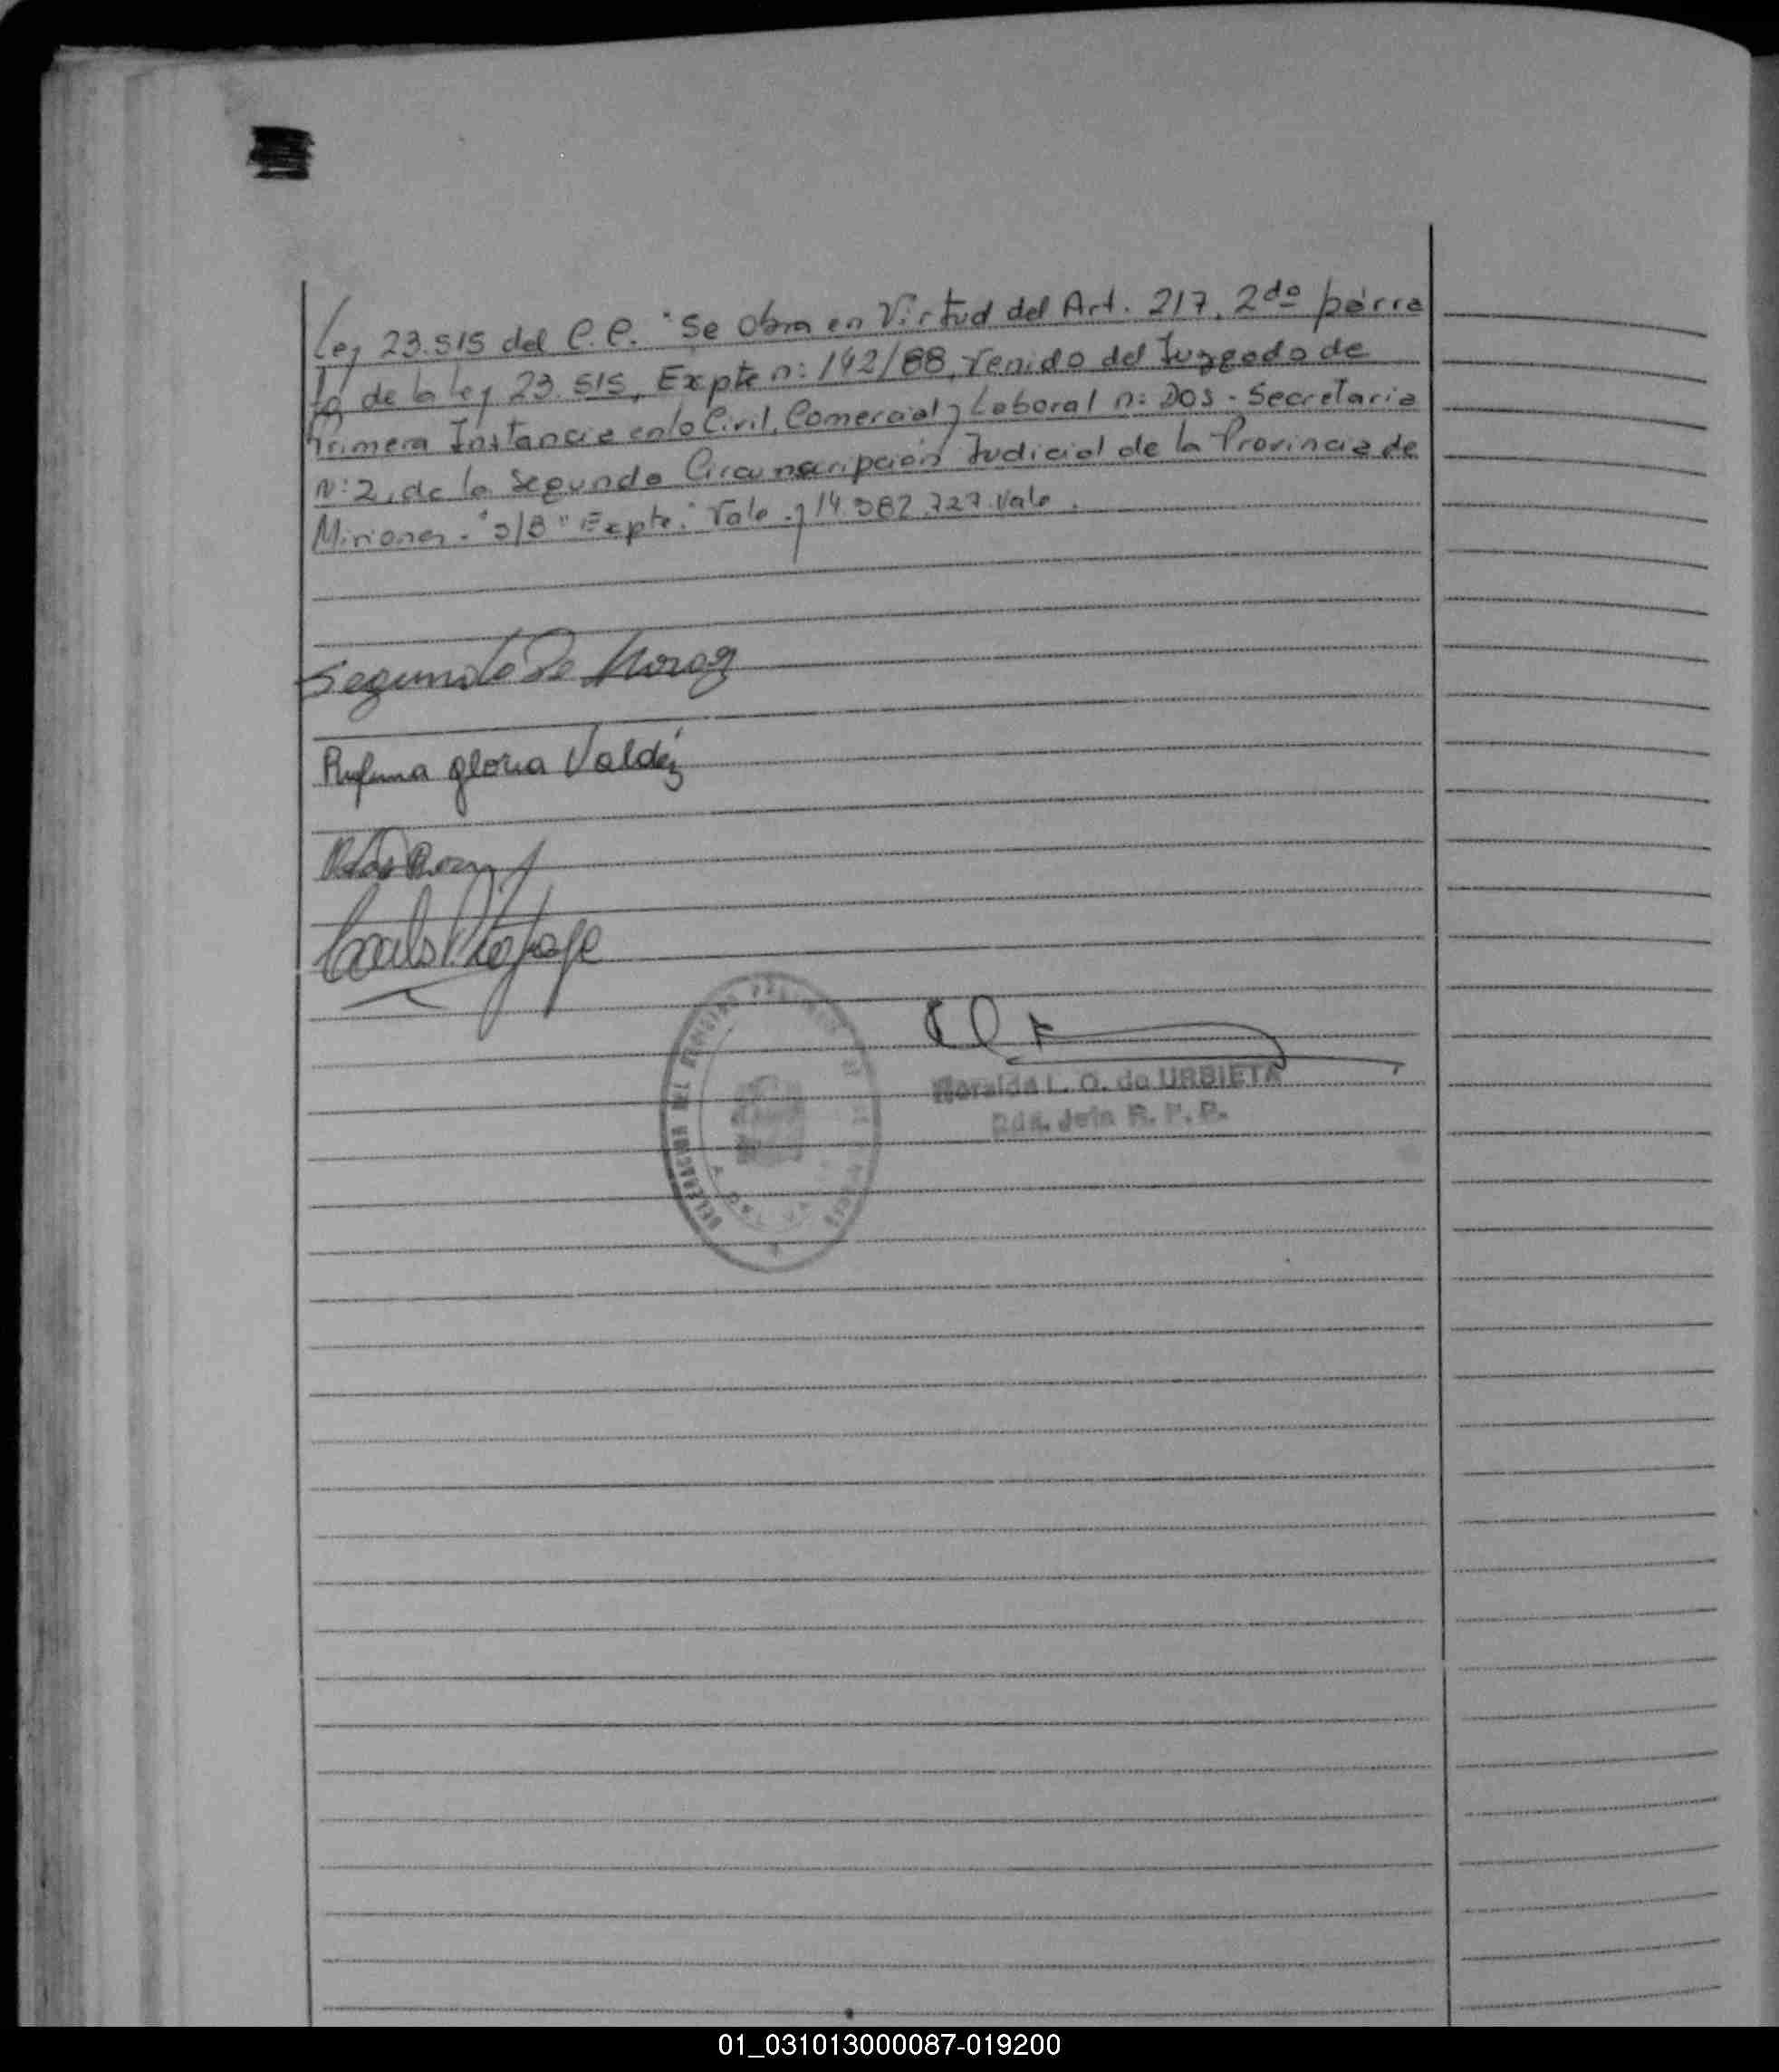 Ley 23.515 del C.C. "Se obra en Virtud del Art. 217, 2do párra
fo de la ley 23.515, Expte n: 142/88, venido del Juzgado de
Primera Instancia en lo Civil, Comercial y Laboral n: Dos - Secretaria
N: 2, de la Segunda Circunscripción Judicial de la Provincia de
Misiones. "S/B" Expte." Vale. y 14.582.727. Vale.
Segundo De Moraz
Rufina gloria Valdéz
L. O. de URBIETA
R. P. P.
DELEGACION
01_031013000087-019200